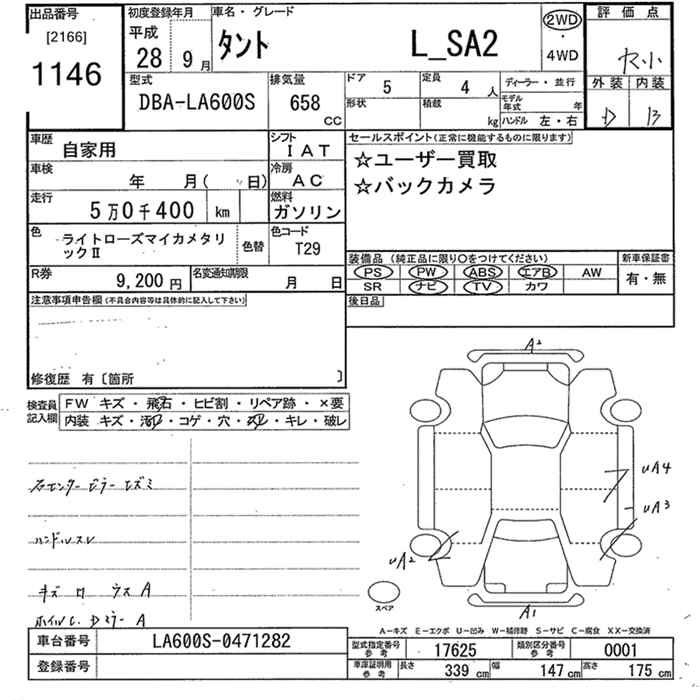 出品番号
[2166]
1146
初度登録年月
平成
28 9月
車名・グレード
タント L_SA2
2WD
・
4WD
評価点
外装 内装
D B
型式
DBA-LA600S
排気量
658 CC
ドア 5
定員 4 人
ディーラー・並行
形状
積載 kg
モデル年式 年
ハンドル 左・右
車歴
自家用
シフト
IAT
車検
年 月( 日)
冷房
AC
走行
5万0千400 km
燃料
ガソリン
色
ライトローズマイカメタリ
ックⅡ
色替
色コード
T29
R券
9,200円
名変通知期限
月 日
セールスポイント(正常に機能するものに限ります)
☆ユーザー買取
☆バックカメラ
装備品 (純正品に限り○をつけてください)
PS PW ABS エアB AW
SR ナビ TV カワ
新車保証書
有・無
後日品
注意事項申告欄(不具合内容等は具体的に記入して下さい)
修復歴 有〔箇所 〕
検査員
記入欄
FW キズ・飛石・ヒビ割・リペア跡・×要
内装 キズ・汚レ・コゲ・穴・スレ・キレ・破レ
ハンドルスレ
A2
UA4
UA3
UA2
A1
スペア
A-キズ E-エクボ U-凹み W-補修跡 S-サビ C-腐食 XX-交換済
車台番号
LA600S-0471282
登録番号
型式指定番号
参考
17625
類別区分番号
参考
0001
車庫証明用
参考
長さ 339 cm
幅 147 cm
高さ 175 cm